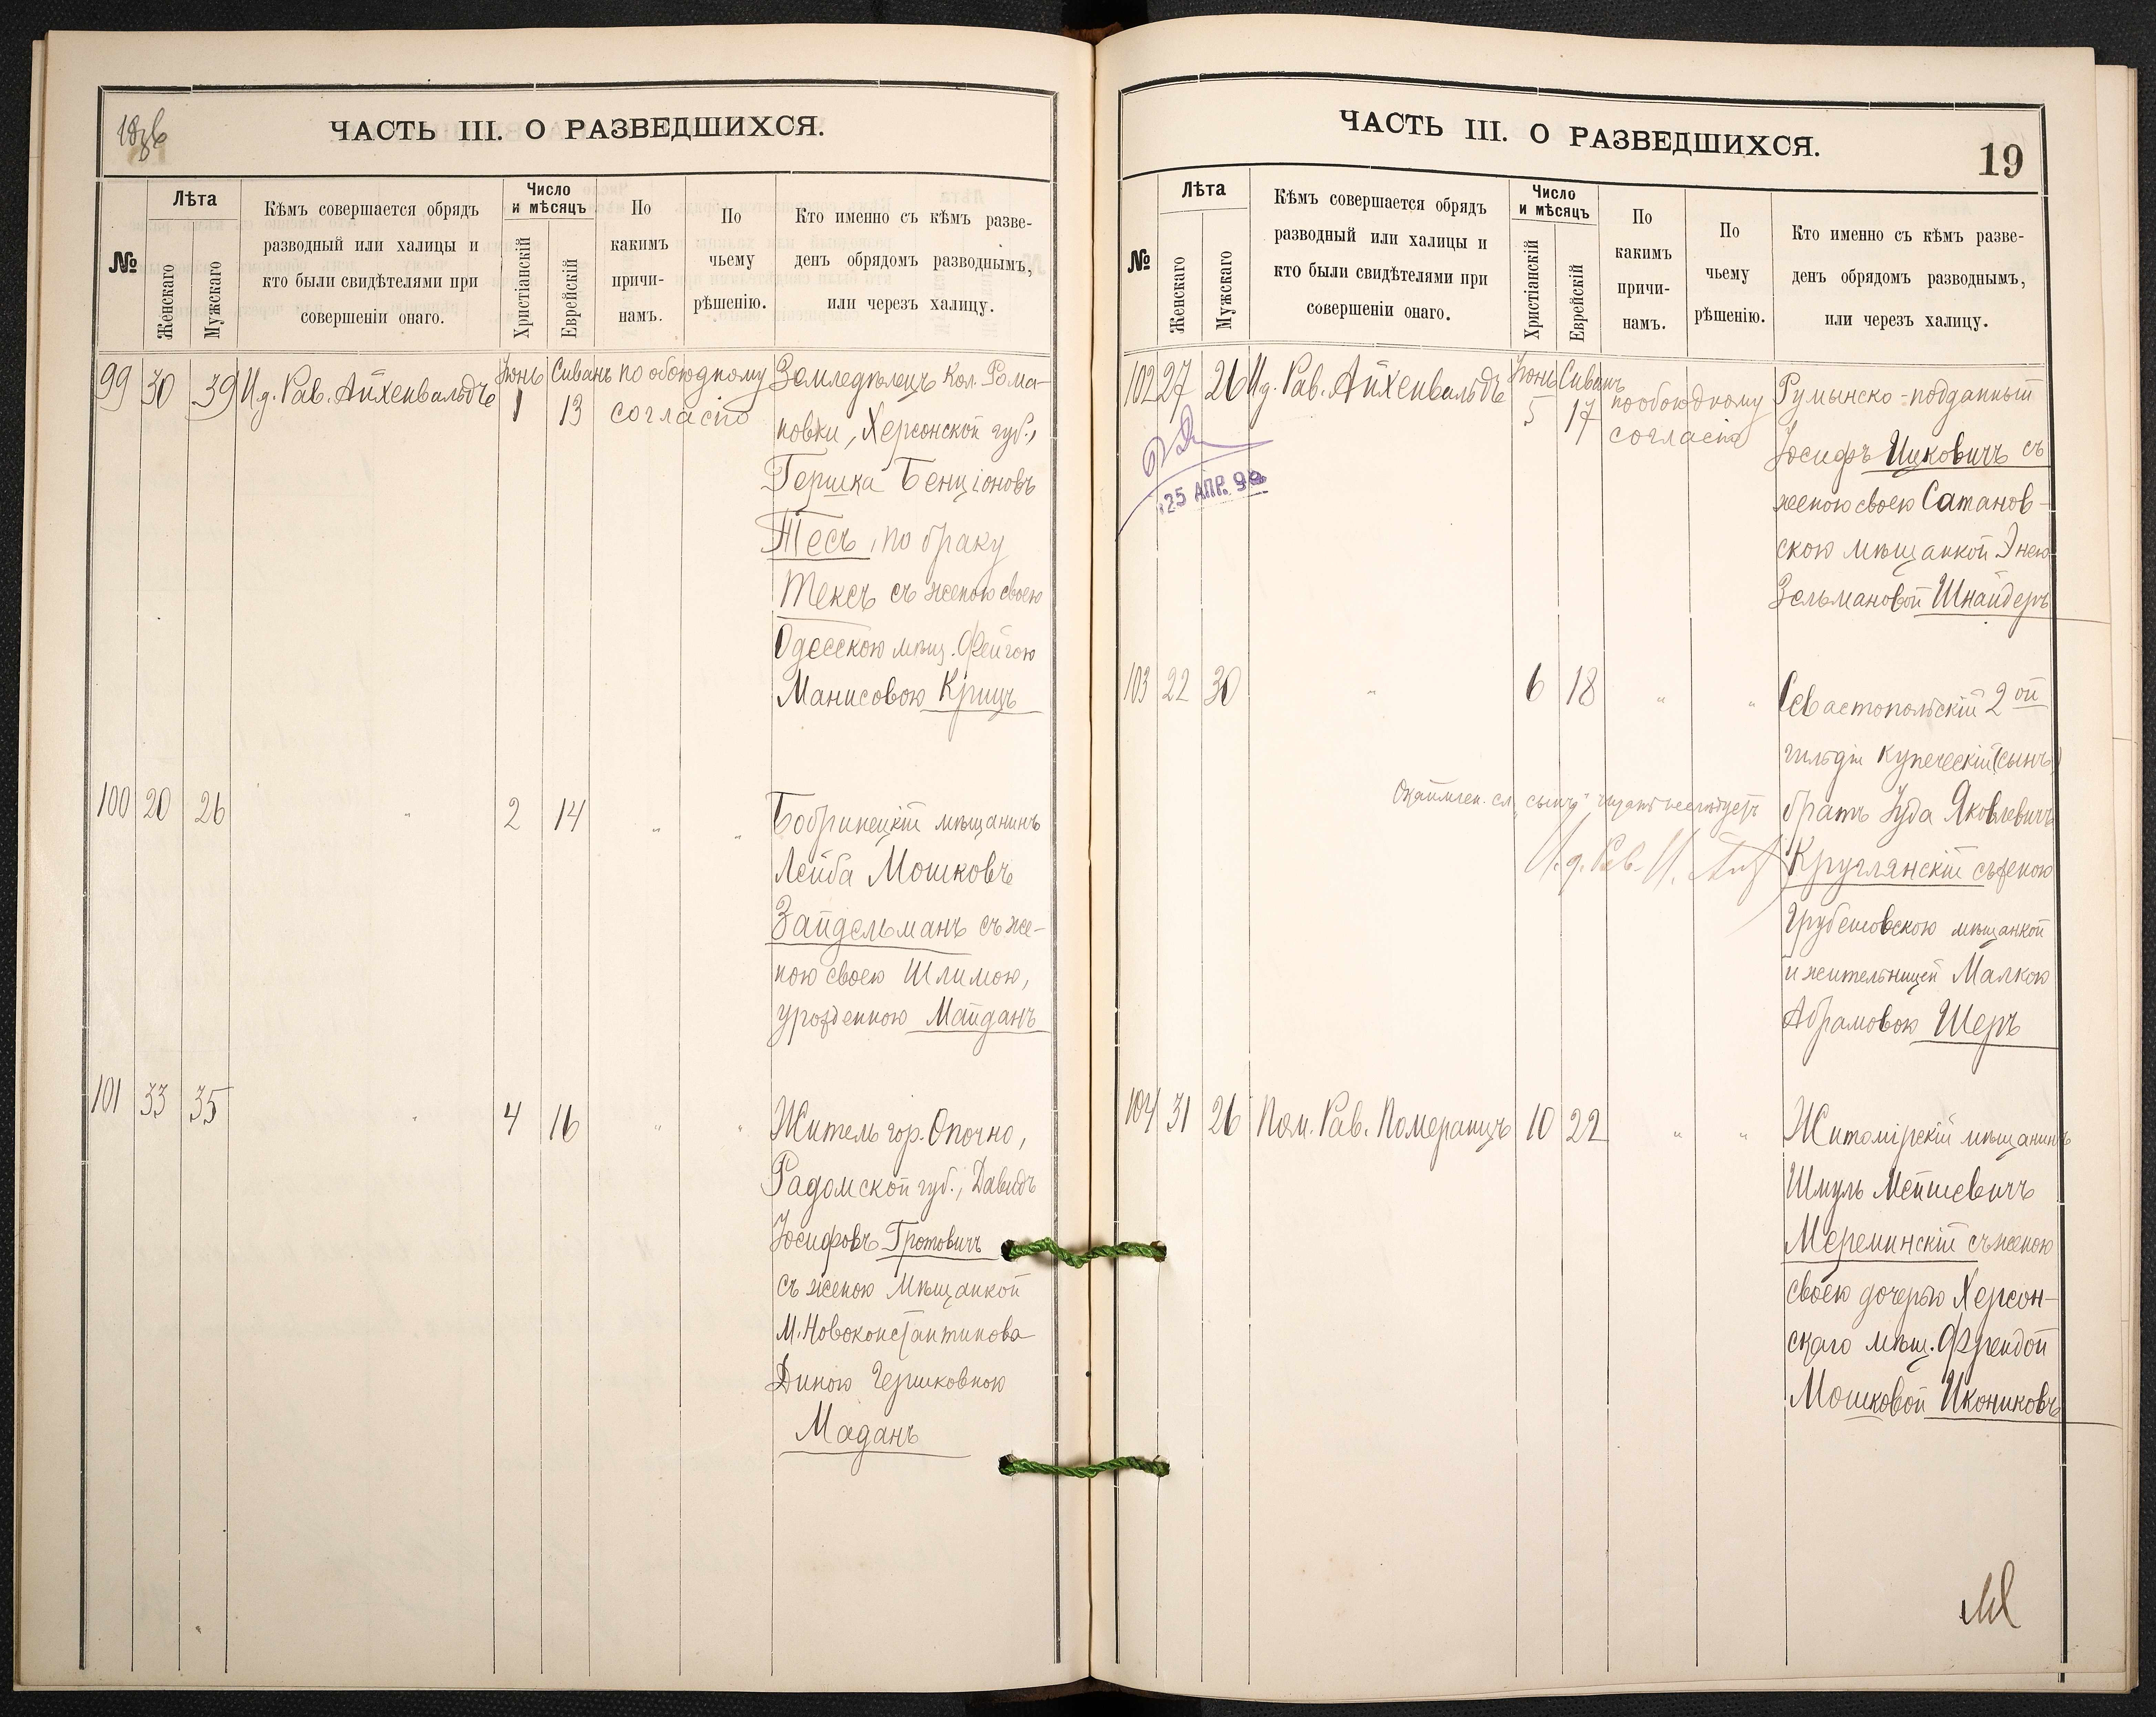 ЧАСТЬ III. О РАЗВЕДШИХСЯ.
№
Лѣта
Женскаго
Мужскаго
Кѣмъ совершается обрядъ
разводный или халицы и
кто были свидѣтелями при
совершеніи онаго.
Число
и мѣсяцъ
Христіанскій
Еврейскій
По
какимъ
причи-
намъ.
По
чьему
рѣшенію.
Кто именно съ кѣмъ разве-
денъ обрядомъ разводнымъ,
или через​ъ халицу.
99 30 39 И д. Рав. Айхенвальдъ Іюнь 1 Сиванъ 13 по обоюдному
согласію
Земледѣлецъ Кол. Рома-
новки, Херсонской губ.,
Гершка Бенціоновъ
Тесъ, по браку
Тексъ съ женою своею
Одесскою мѣщ. Фейгою
Манисовою Крицъ
100 20 26 " 2 14 " "
Бобринецкій мѣщанинъ
Лейба Мошковъ
Зайдельманъ съ же-
ною своею Шлимою,
урожденною Майданъ
101 33 35 " 4 16 " "
Житель гор. Опочно,
Радомской губ., Давидъ
Іосифовъ Гротовичъ
съ женою мѣщанкой
м. Новоконстантинова
Диною Гершковною
Маданъ
ЧАСТЬ III. О РАЗВЕДШИХСЯ.
19
№
Лѣта
Женскаго
Мужскаго
Кѣмъ совершается обрядъ
разводный или халицы и
кто были свидѣтелями при
совершеніи онаго.
Число
и мѣсяцъ
Христіанскій
Еврейскій
По
какимъ
причи-
намъ.
По
чьему
рѣшенію.
Кто именно съ кѣмъ разве-
денъ обрядомъ разводнымъ,
или черезъ халицу.
102 27 26 И д. Рав. Айхенвальдъ Іюнь 5 Сиванъ 17 по обоюдному
согласію
25 АПР. 9
Румынско-подданный
Іосифъ Ицковичъ съ
женою своею Сатанов-
скою мѣщанкой Энею
Зельмановой Шнайдеръ
103 22 30 " 6 18 " "
Севастопольскій 2 ой
гильдіи купеческій (сынъ)
братъ Іуда Яковлевичъ
Круглянскій съ женою
Грубешовскою мѣщанкой
и жительницей Малкою
Абрамовою Шеръ
сл. "сынъ" читать не слѣдуетъ
И. д. Рав.
104 31 26 Пом. Рав. Померанцъ 10 22 " "
Житомірскій мѣщанинъ
Шмуль Мейшевичъ
Мереминскій съ женою
своею дочерью Херсон-
скаго мѣщ. Френдой
Мошковой Икониковъ